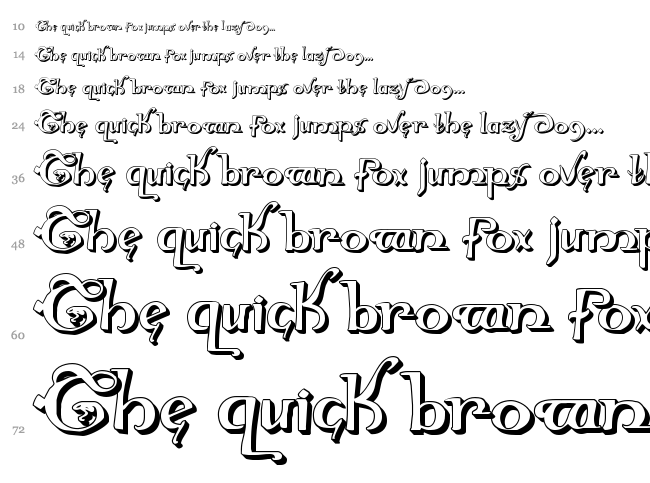 10 The quick brown fox jumps over the lazy dog...
14 The quick brown fox jumps over the lazy dog...
18 The quick brown fox jumps over the lazy dog...
24 The quick brown fox jumps over the lazy dog...
36 The quick brown fox jumps over t
48 The quick brown fox jump
60 The quick brown fox
72 The quick brown